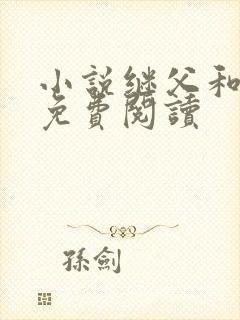 小說继父和
免費閱讀
孫劍